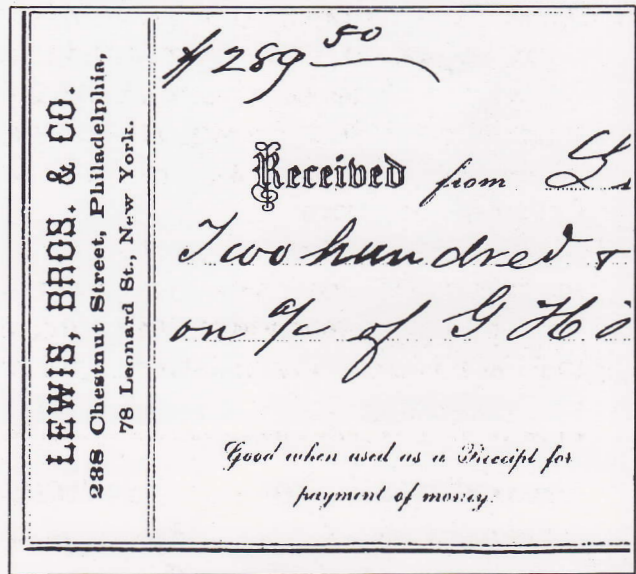 LEWIS, BROS. & CO.
238 Chestnut Street, Philadelphia,
78 Leonard St., New York.
$289 50
Received from
Two hundred &
on a/c of G H
Good when used as a Receipt for
payment of money.